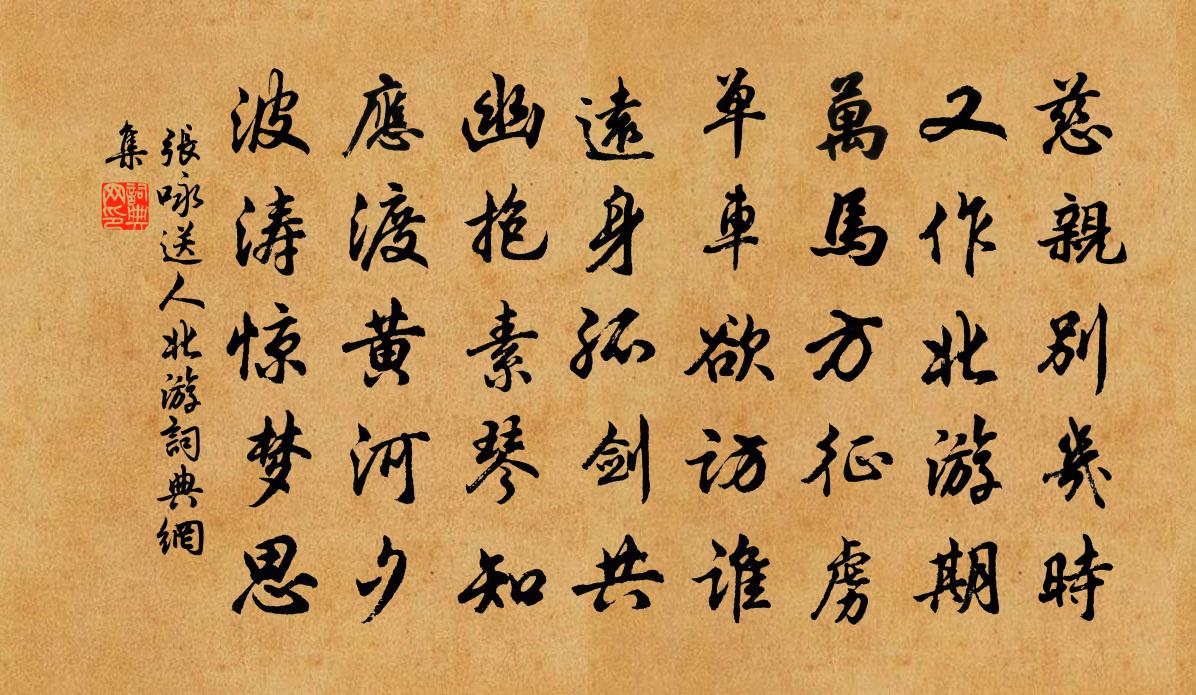 慈親別幾時
又作北游期
萬馬方征虜
单車欲訪誰
遠身孤劍共
幽抱素琴知
應渡黃河夕
波涛惊梦思
張咏送人北游詞典網
集
詞典
网印